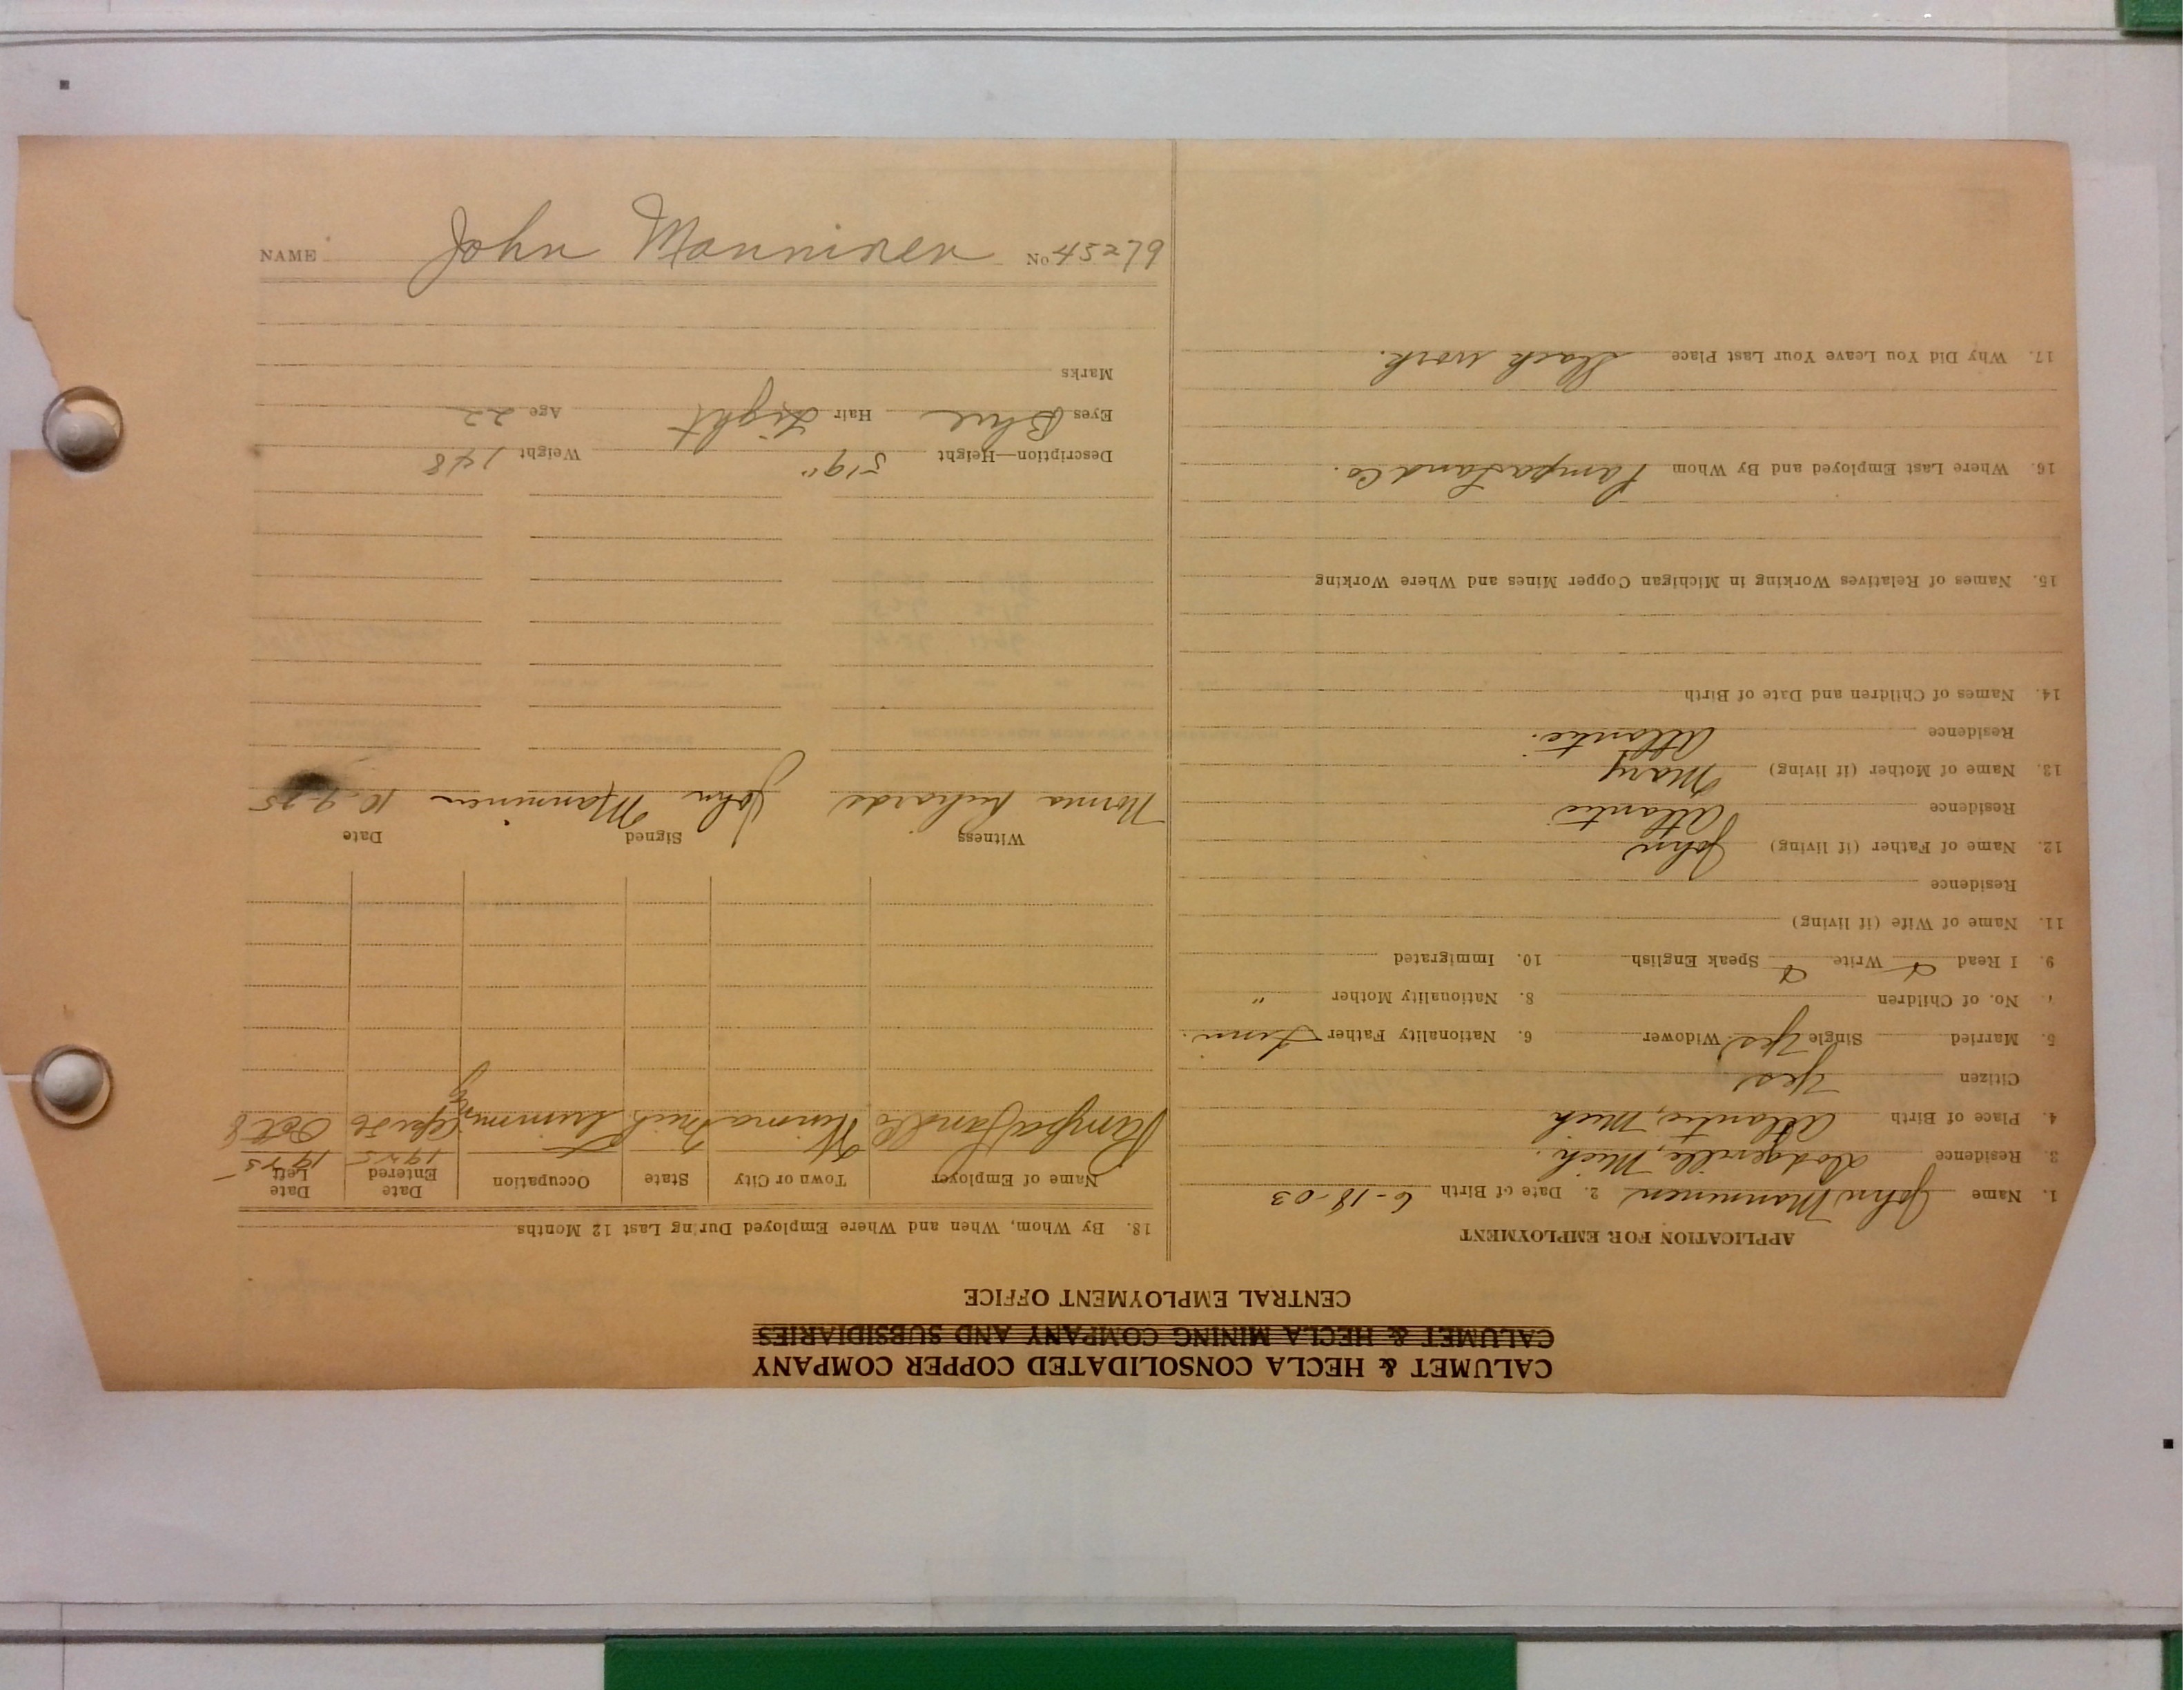 CALUMET & HECLA CONSOLIDATED COPPER COMPANY
CALUMET & HECLA MINING COMPANY AND SUBSIDIARIES
CENTRAL EMPLOYMENT OFFICE
APPLICATION FOR EMPLOYMENT
1. Name John Manninen 2. Date of Birth 6-18-03
3. Residence Dodgeville, Mich.
4. Place of Birth Atlantic, Mich
Citizen Yes
5. Married Single Yes Widower 6. Nationality Father Finn.
7. No. of Children 8. Nationality Mother "
9. I Read & Write & Speak English 10. Immigrated
11. Name of Wife (if living)
Residence
12. Name of Father (if living) John
Residence Atlantic
13. Name of Mother (if living) Mary
Residence Atlantic.
14. Names of Children and Date of Birth
15. Names of Relatives Working in Michigan Copper Mines and Where Working
16. Where Last Employed and By Whom Pampa Land Co.
17. Why Did You Leave Your Last Place Slack work.
18. By Whom, When and Where Employed During Last 12 Months
Name of Employer Town or City State Occupation Date Entered Date Left
1925 1925
Pampa Land Co Mich Oct 8
Witness Signed Date
Norma Richards John Manninen 10-9-25
Description—Height 5'9" Weight 148
Eyes Blue Hair Light Age 22
Marks
NAME John Manninen No 45279